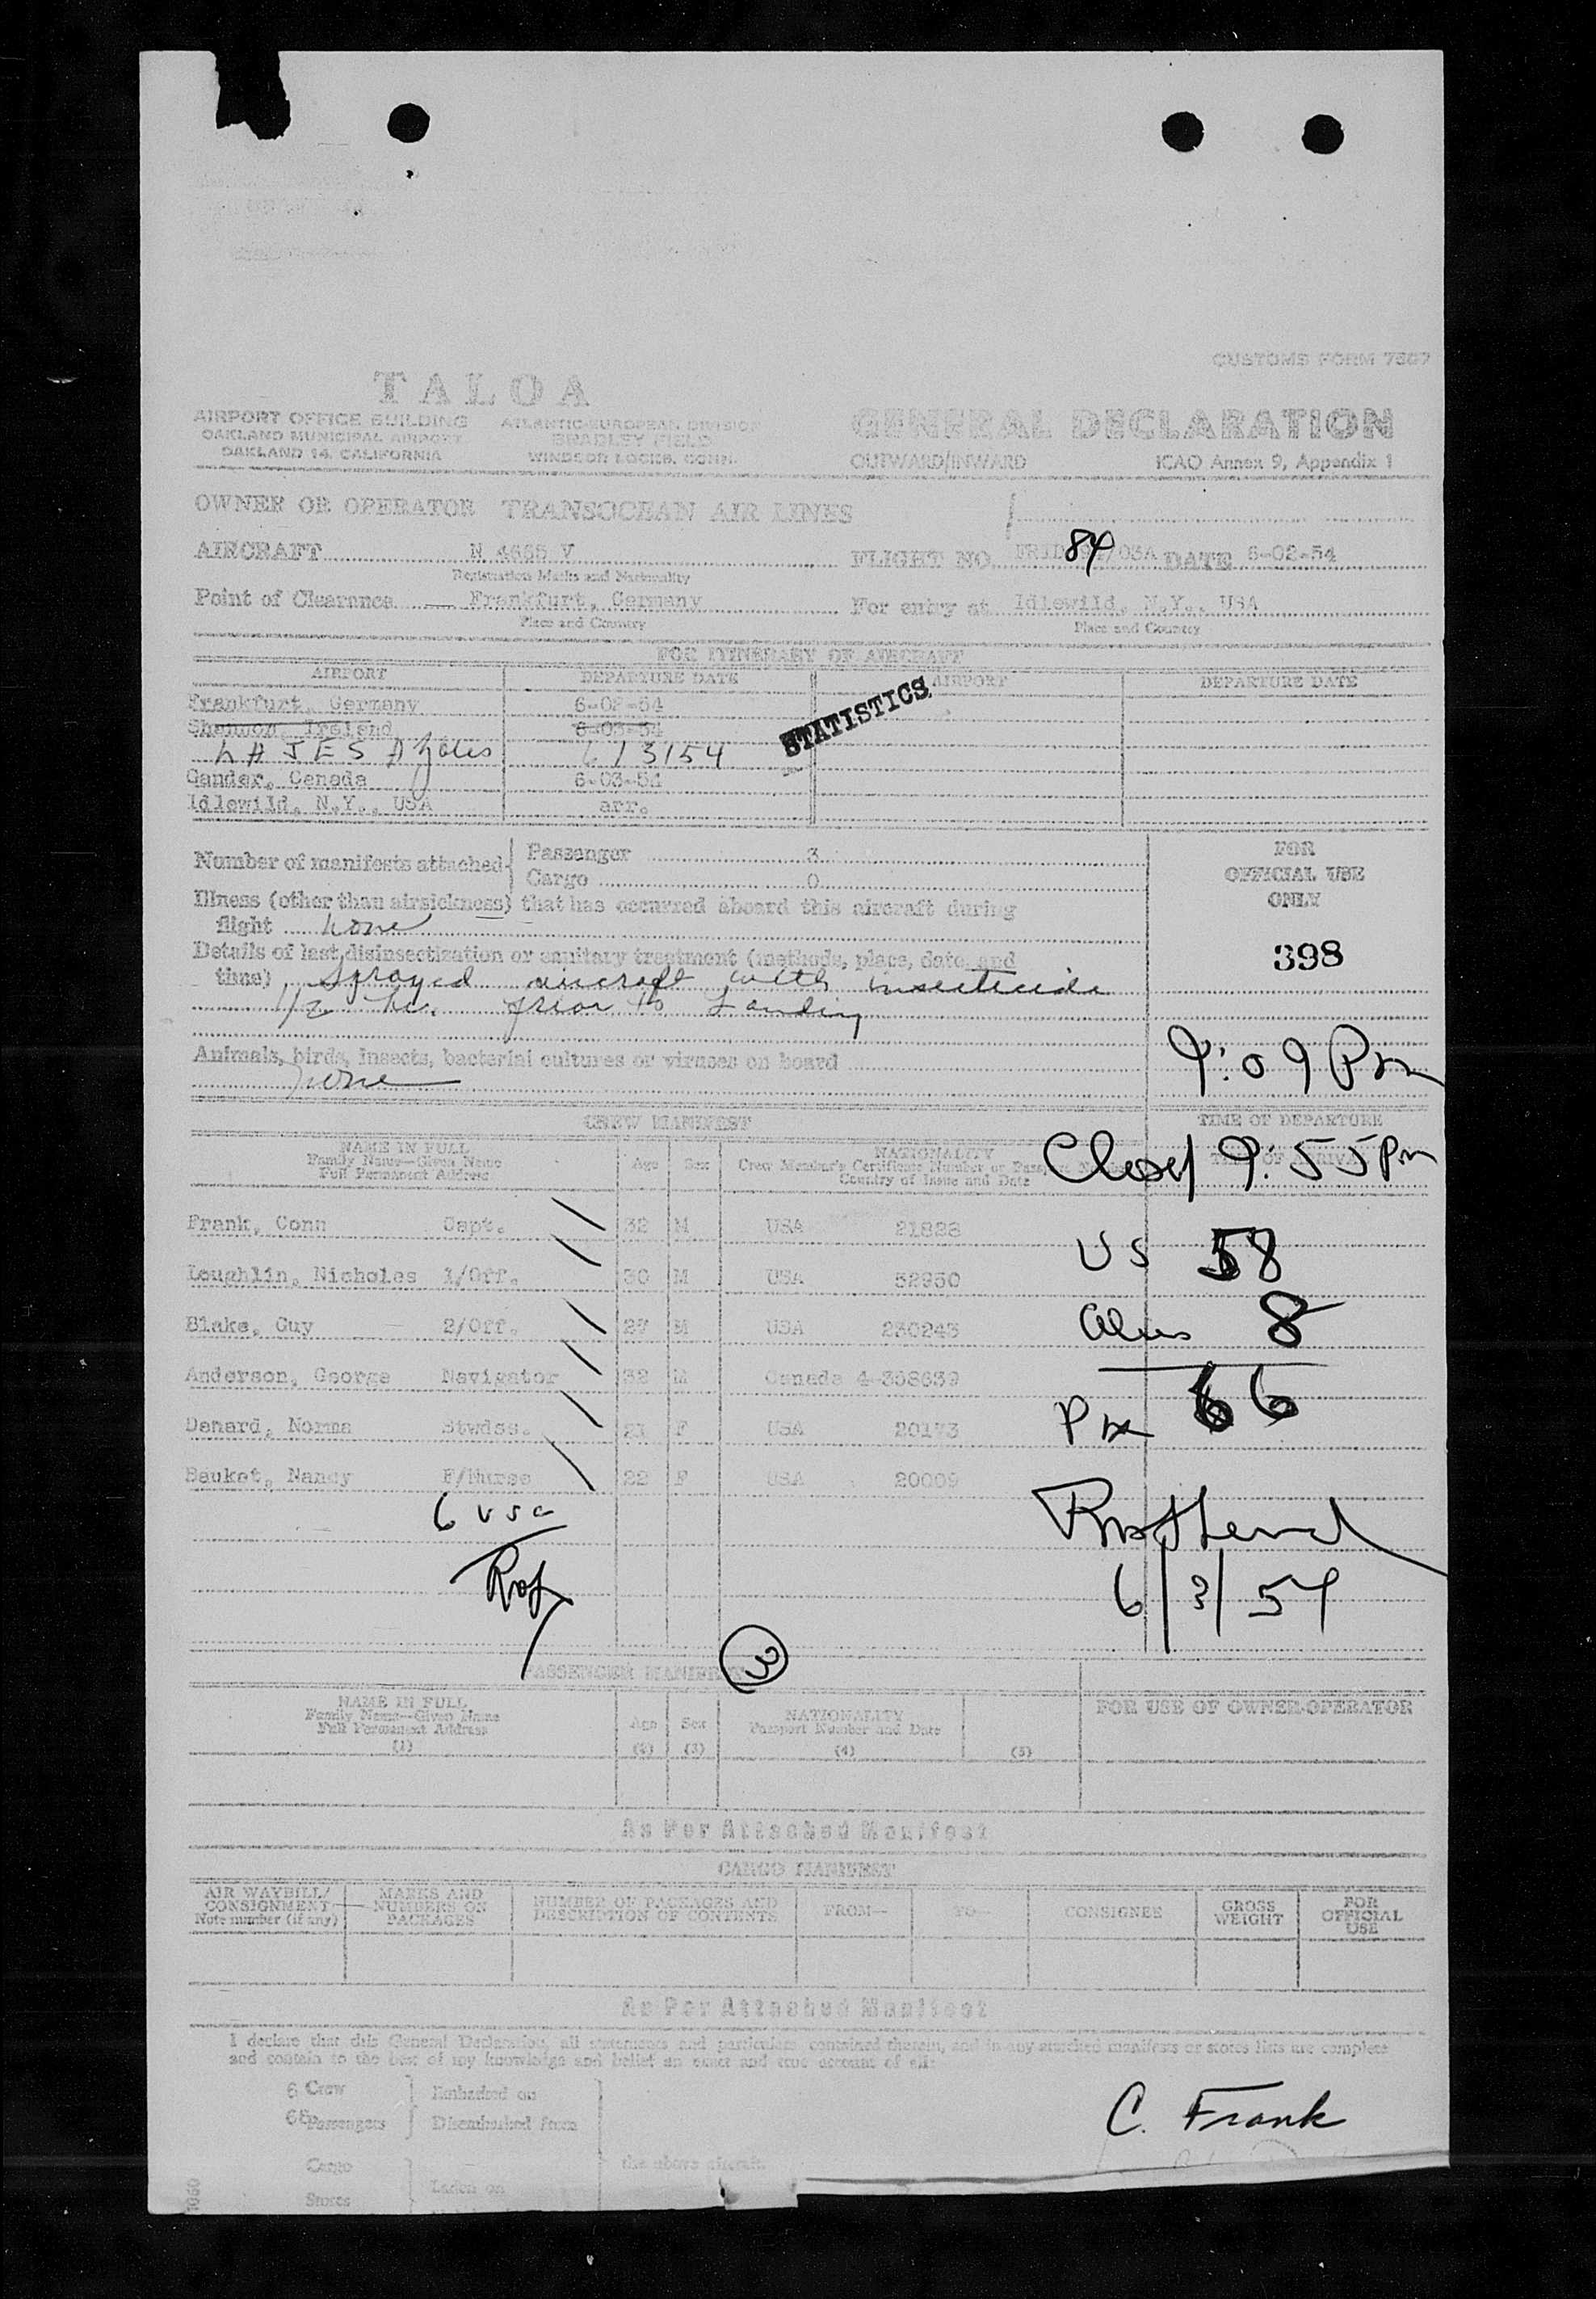 CUSTOMS FORM 7507
TALOA
AIRPORT OFFICE BUILDING
OAKLAND MUNICIPAL AIRPORT
OAKLAND 14, CALIFORNIA
ATLANTIC-EUROPEAN DIVISION
BRADLEY FIELD
WINDSOR LOCKS, CONN.
GENERAL DECLARATION
OUTWARD/INWARD ICAO Annex 9, Appendix 1
OWNER OR OPERATOR TRANSOCEAN AIR LINES
AIRCRAFT N 4665 V FLIGHT NO 84 /03A DATE 6-02-54
Registration Marks and Nationality
Point of Clearance Frankfurt, Germany For entry at Idlewild, N.Y., USA
Place and Country Place and Country
FOR ITINERARY OF AIRCRAFT
AIRPORT DEPARTURE DATE AIRPORT DEPARTURE DATE
STATISTICS
Frankfurt, Germany 6-02-54
Shannon, Ireland 6-03-54
LAJES Azores 6/3/54
Gander, Canada 6-03-54
Idlewild, N.Y., USA arr.
Number of manifests attached Passenger 3
Cargo 0
FOR
OFFICIAL USE
ONLY
Illness (other than airsickness) that has occurred aboard this aircraft during
flight none
Details of last disinsectization or sanitary treatment (methods, place, date and
time) Sprayed aircraft with insecticide
1/2 hr. prior to Landing
398
Animals, birds, insects, bacterial cultures or viruses on board
none
9:09 Pm
CREW MANIFEST TIME OF DEPARTURE
NAME IN FULL
Family Name—Given Name
Full Permanent Address
Age Sex
NATIONALITY
Crew Member's Certificate Number or Passport Number
Country of Issue and Date
TIME OF ARRIVAL
Closed 9:55 Pm
Frank, Conn Capt. 32 M USA 21828
Loughlin, Nicholas 1/Off. 30 M USA 52950
US 58
Blake, Guy 2/Off. 27 M USA 230243
Aliens 8
Anderson, George Navigator 32 M Canada 4-358639
66
Denard, Norma Stwdss. 21 F USA 20173
Px
Bauket, Nancy F/Nurse 22 F USA 20009
6 usc
6/3/54
3
PASSENGER MANIFEST
NAME IN FULL
Family Name—Given Name
Full Permanent Address
(1)
Age
(2)
Sex
(3)
NATIONALITY
Passport Number and Date
(4)
(5)
FOR USE OF OWNER-OPERATOR
As Per Attached Manifest
CARGO MANIFEST
AIR WAYBILL/
CONSIGNMENT
Note number (if any)
MARKS AND
NUMBERS ON
PACKAGES
NUMBER OF PACKAGES AND
DESCRIPTION OF CONTENTS
FROM—
TO—
CONSIGNEE
GROSS
WEIGHT
FOR
OFFICIAL
USE
As Per Attached Manifest
I declare that this General Declaration, all statements and particulars contained therein, and in any attached manifests or stores lists are complete
and contain to the best of my knowledge and belief an exact and true account of all:
6 Crew Embarked on
66 Passengers Disembarked from
C. Frank
Cargo the above aircraft.
Laden on
Stores